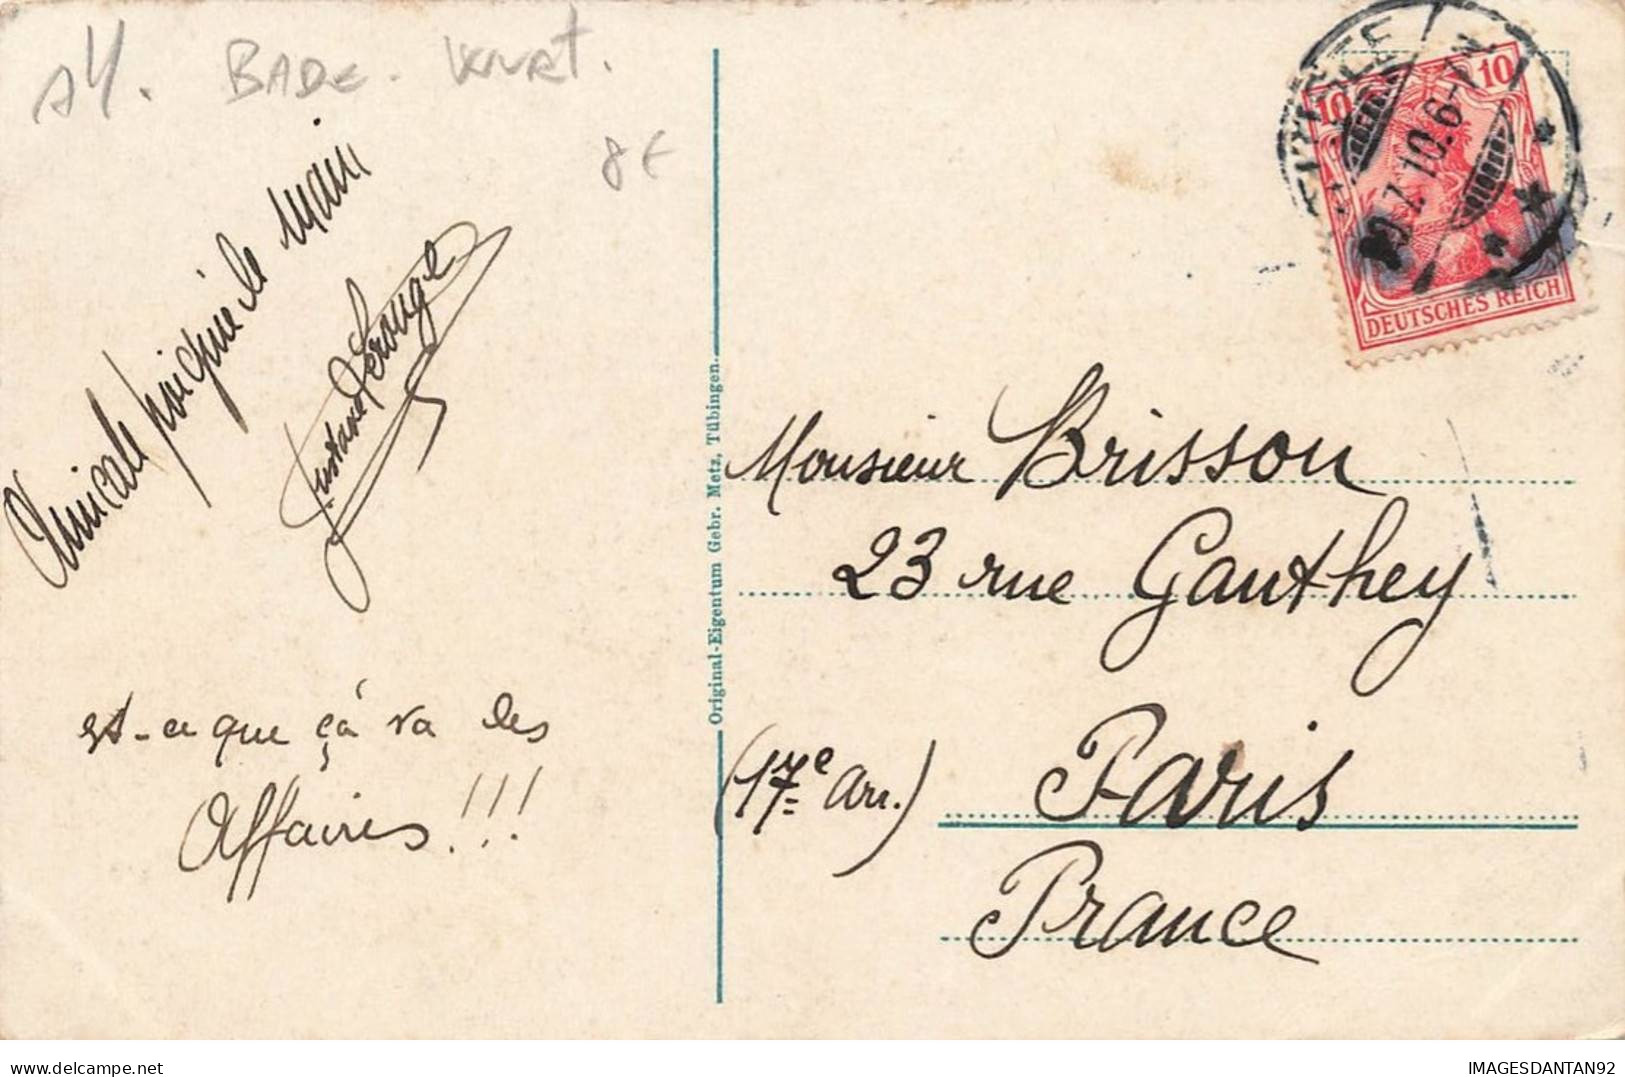 BADE - Wurt.
8€
Amicale poignée de main
Gustave Lerouge
est-ce que çà va les
Affaires !!!
Original-Eigentum Gebr. Metz, Tübingen.
10 10
7.10.6-7N.
DEUTSCHES REICH
Monsieur Brisson
23 rue Gauthey
(17e Arr.) Paris
France
IMAGESDANTAN92